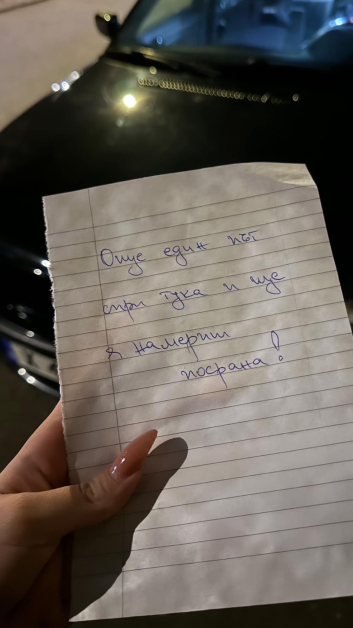 Още един път
спри тука и ще
я намериш
посрана!